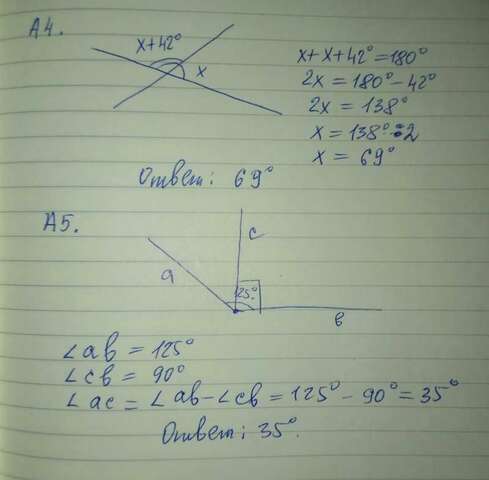 А4.
x+42°
x
x+x+42°=180°
2x = 180°-42°
2x = 138°
x = 138°:2
x = 69°
Ответ: 69°
А5.
c
a
125°
в
∠aв = 125°
∠cв = 90°
∠ac = ∠aв-∠cв = 125° - 90° = 35°
Ответ: 35°.